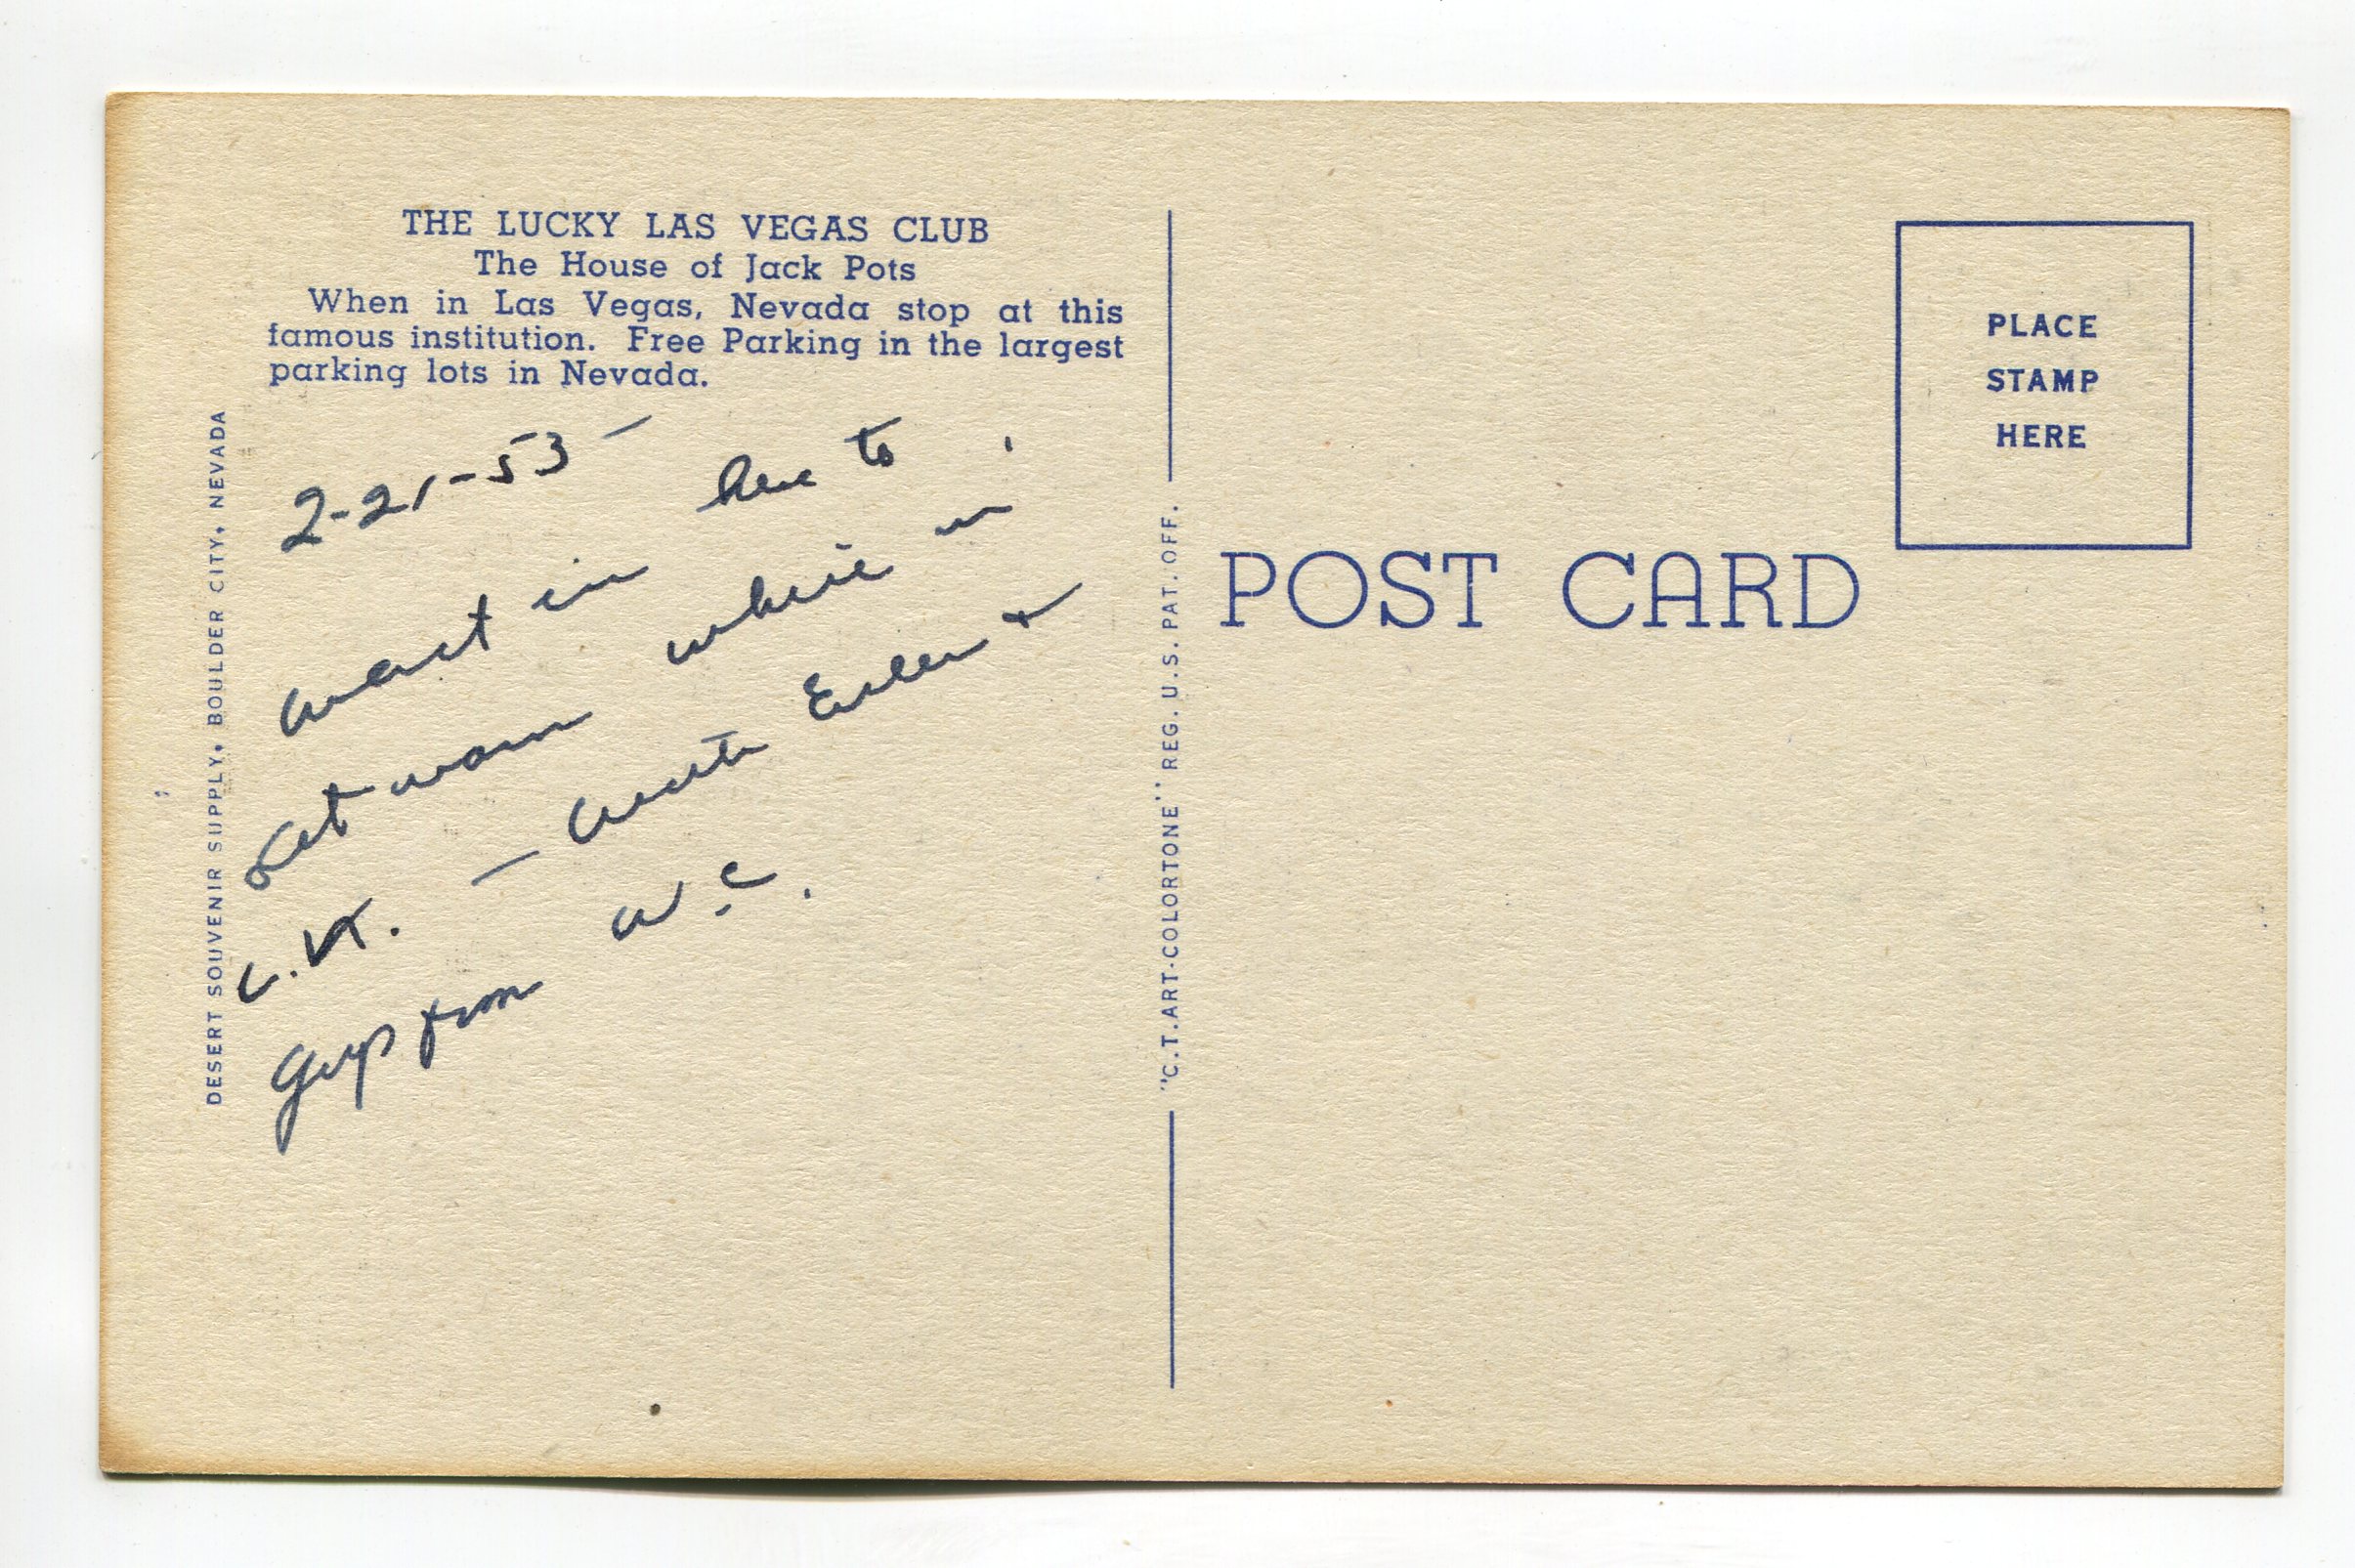 THE LUCKY LAS VEGAS CLUB
The House of Jack Pots
When in Las Vegas, Nevada stop at this
famous institution. Free Parking in the largest
parking lots in Nevada.
2-21-53
went in here to
get warm while in
L.V. - with Eileen +
from W.C.
DESERT SOUVENIR SUPPLY, BOULDER CITY, NEVADA
"C.T. ART-COLORTONE" REG. U.S. PAT. OFF.
POST CARD
PLACE
STAMP
HERE